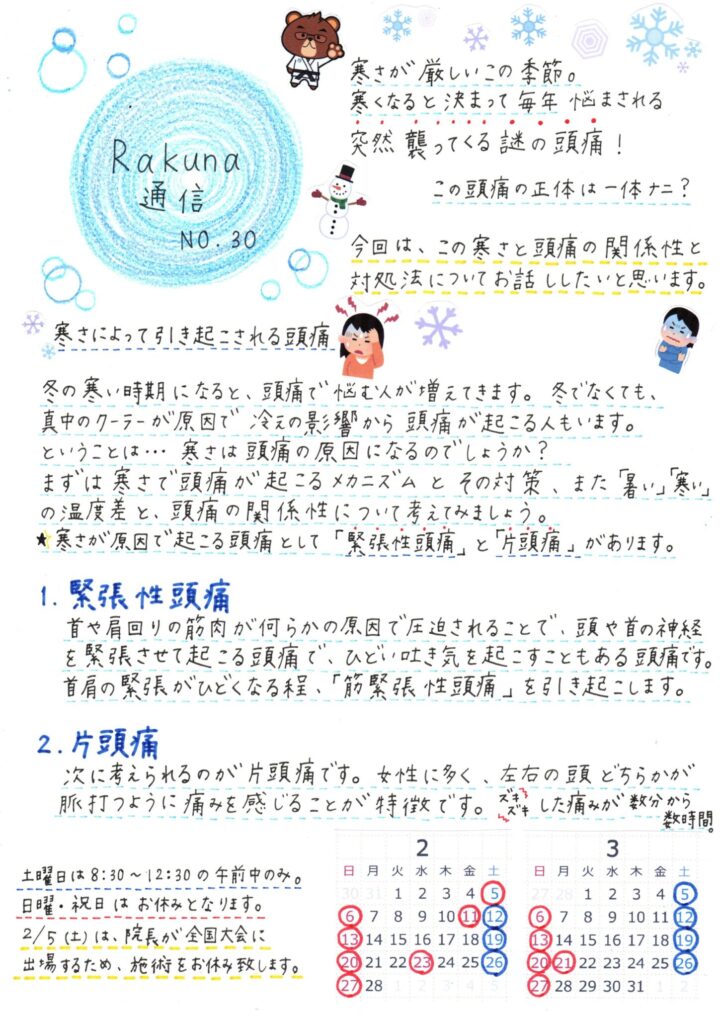 Rakuna
通信
NO.30
寒さが厳しいこの季節。
寒くなると決まって毎年悩まされる
突然襲ってくる謎の頭痛！
この頭痛の正体は一体ナニ？
今回は、この寒さと頭痛の関係性と
対処法についてお話ししたいと思います。
寒さによって引き起こされる頭痛
冬の寒い時期になると、頭痛で悩む人が増えてきます。冬でなくても、
真中のクーラーが原因で冷えの影響から頭痛が起こる人もいます。
ということは…寒さは頭痛の原因になるのでしょうか？
まずは寒さで頭痛が起こるメカニズムとその対策、また「暑い」「寒い」
の温度差と、頭痛の関係性について考えてみましょう。
★寒さが原因で起こる頭痛として「緊張性頭痛」と「片頭痛」があります。
1.緊張性頭痛
首や肩回りの筋肉が何らかの原因で圧迫されることで、頭や首の神経
を緊張させて起こる頭痛で、ひどい吐き気を起こすこともある頭痛です。
首肩の緊張がひどくなる程、「筋緊張性頭痛」を引き起こします。
2.片頭痛
次に考えられるのが片頭痛です。女性に多く、左右の頭どちらかが
脈打つように痛みを感じることが特徴です。ズキズキした痛みが数分から
数時間。
土曜日は8:30～12:30の午前中のみ。
日曜・祝日はお休みとなります。
2/5(土)は、院長が全国大会に
出場するため、施術をお休み致します。
2
日 月 火 水 木 金 土
30 31 1 2 3 4 5
6 7 8 9 10 11 12
13 14 15 16 17 18 19
20 21 22 23 24 25 26
27 28 1 2 3 4 5
3
日 月 火 水 木 金 土
27 28 1 2 3 4 5
6 7 8 9 10 11 12
13 14 15 16 17 18 19
20 21 22 23 24 25 26
27 28 29 30 31 1 2